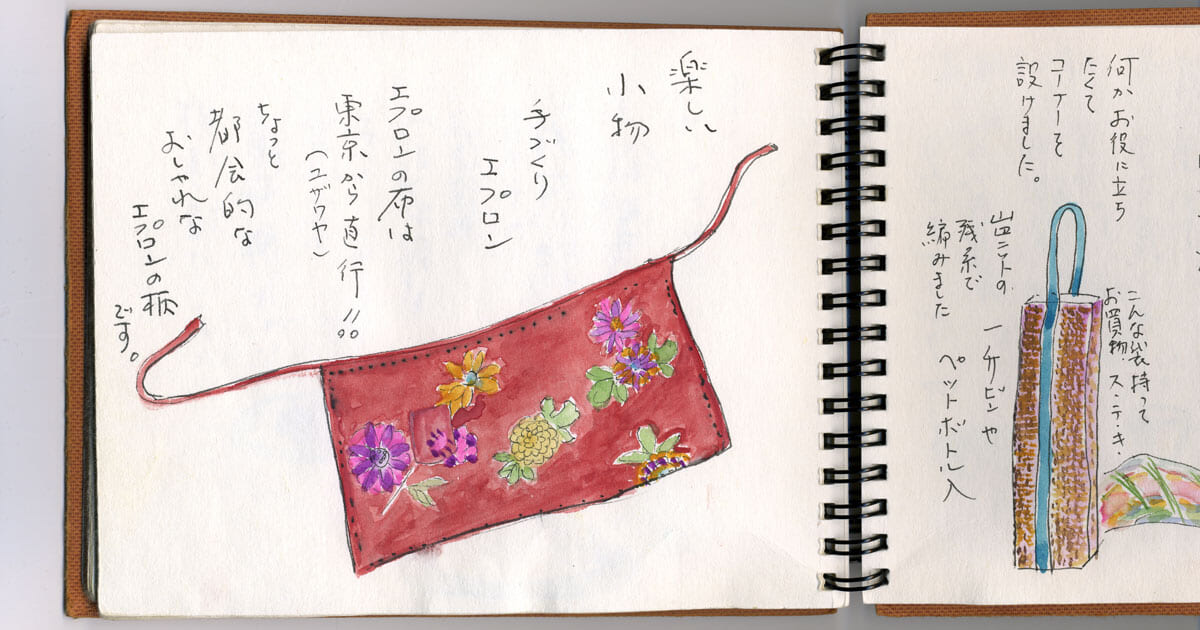 何かお役に立ち
たくて
コーナーを
設けました。
こんな袋持って
お買物。ス・テ・キ・
ニットの
残糸で
編みました
一升ビンや
ペットボトル入
楽しい
小物
手づくり
エプロン
エプロンの布は
東京から直行!!
(ユザワヤ)
ちょっと
都会的な
おしゃれな
エプロンの柄
です。